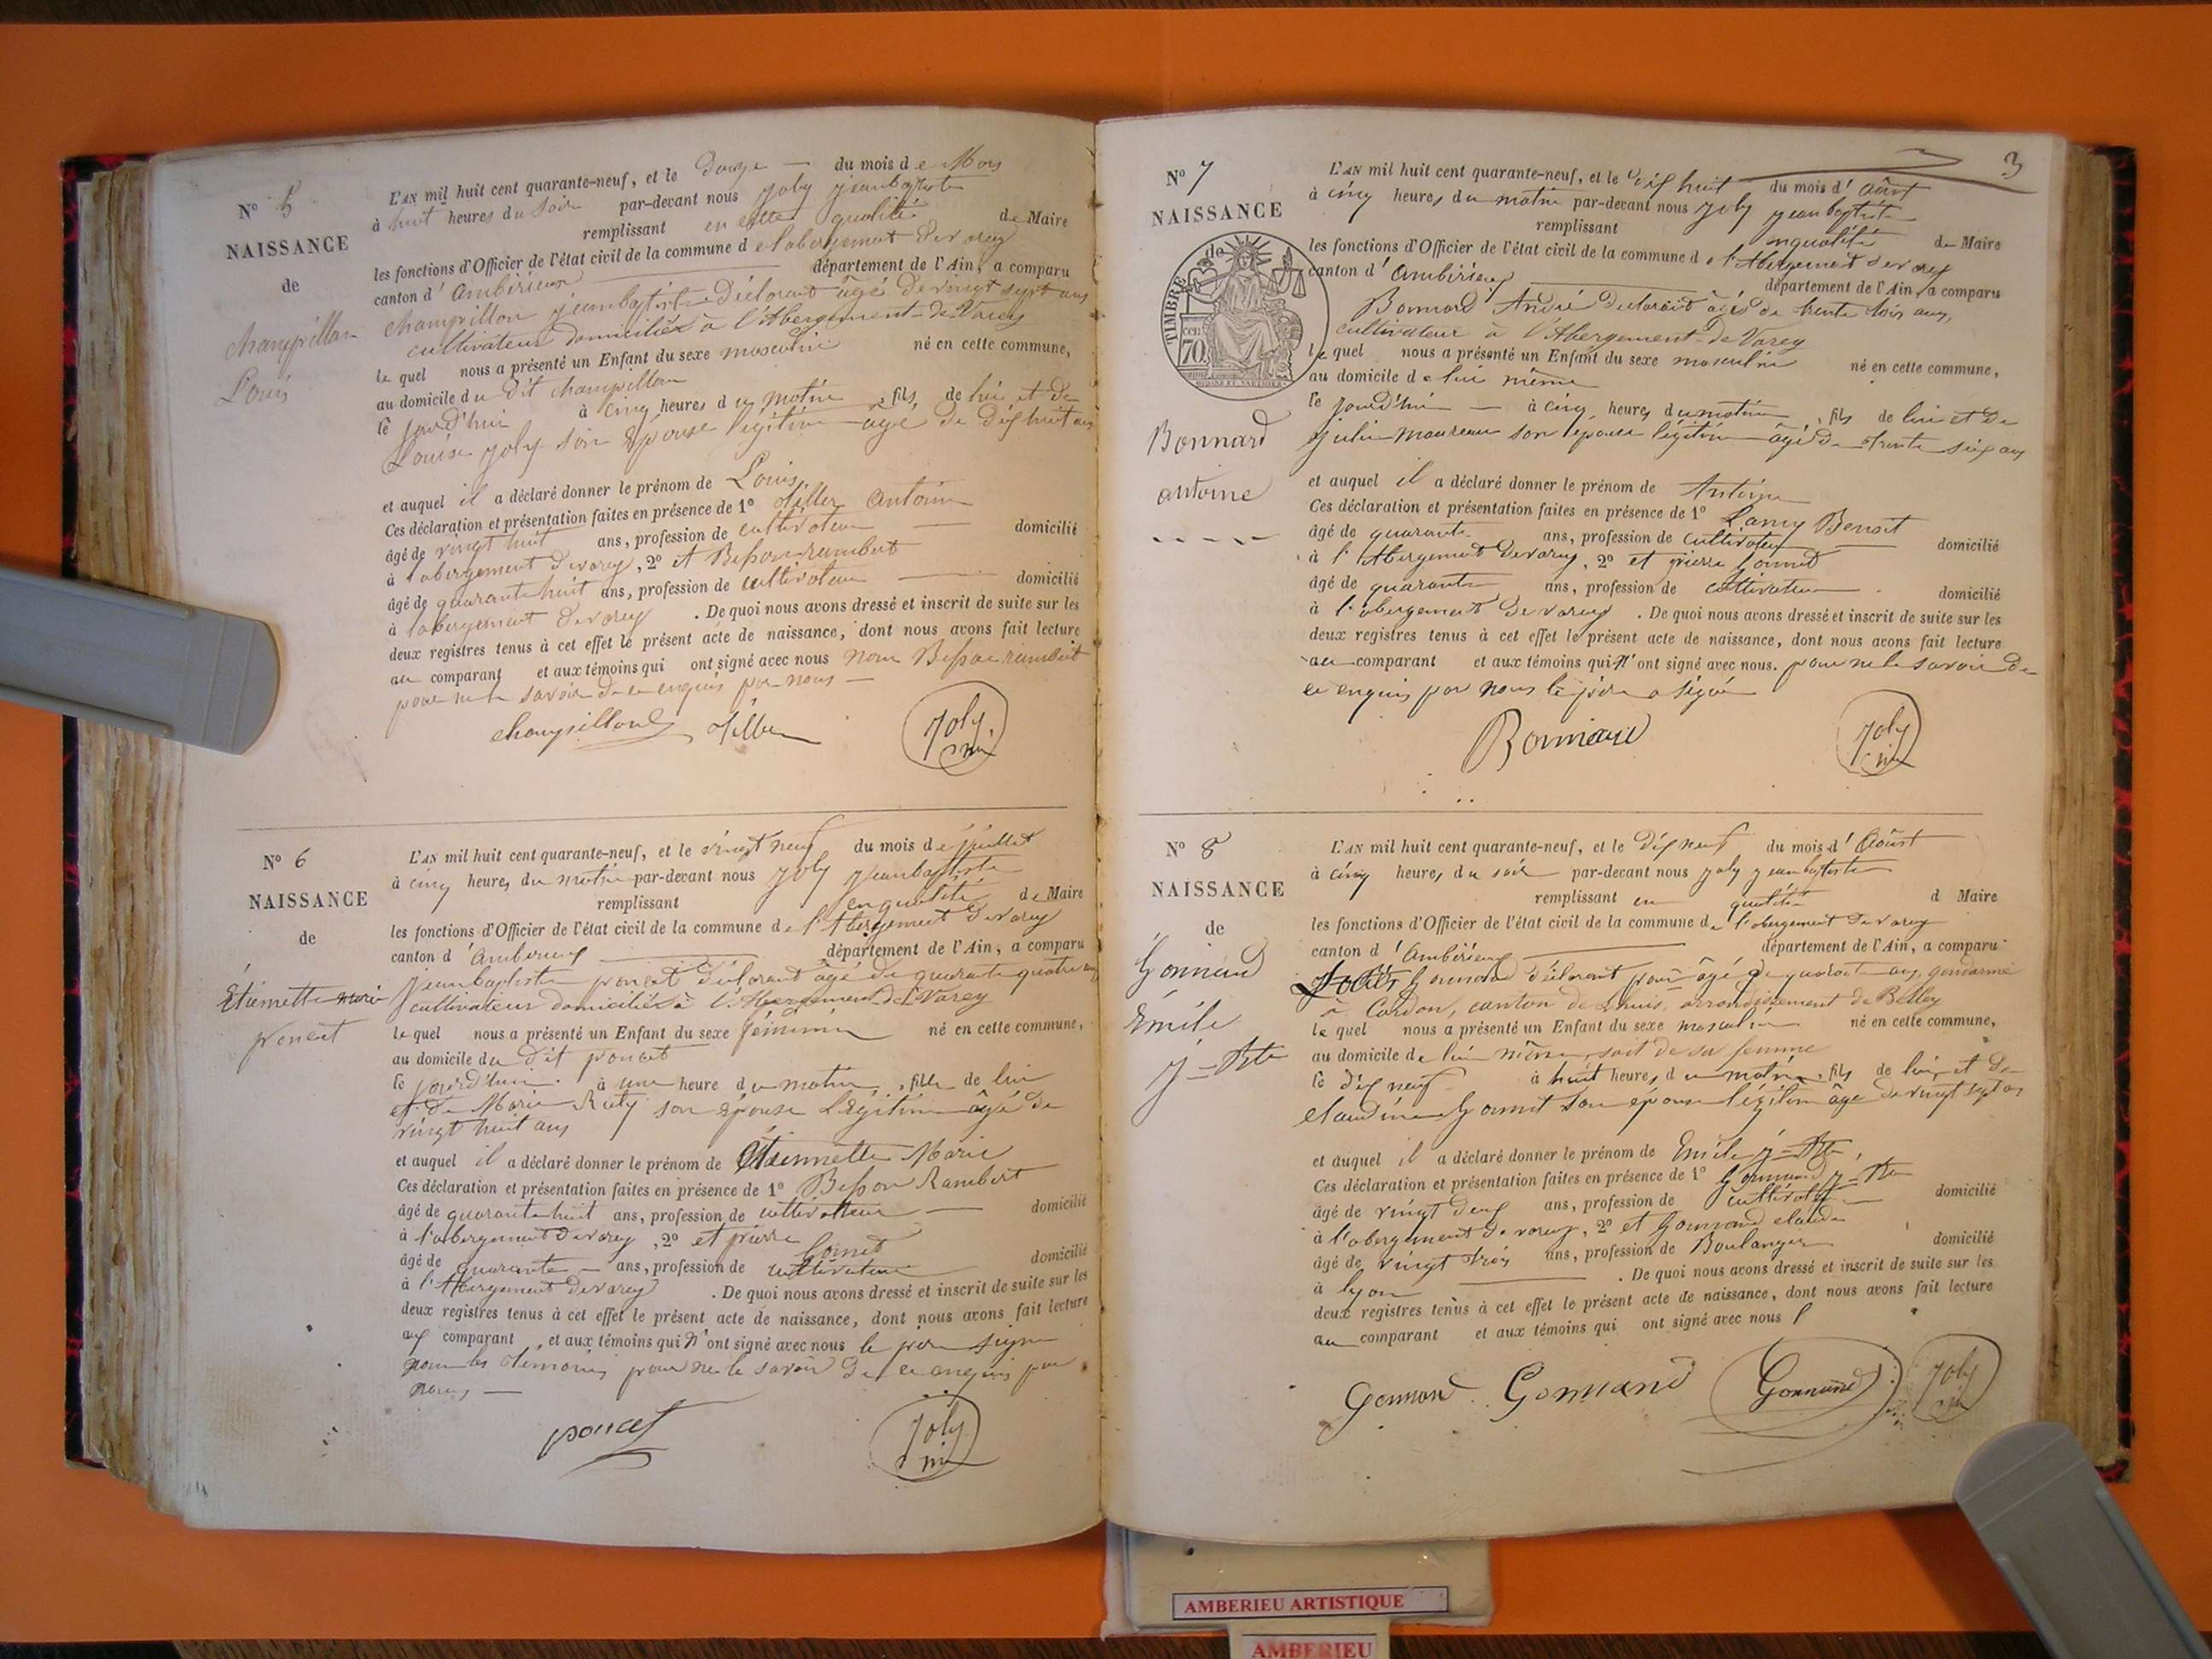 N° 5
NAISSANCE
de
Champillon
Louis
L'AN mil huit cent quarante-neuf, et le Douze du mois de Mars
à huit heures du Soir par-devant nous Joly Jeanbaptiste
remplissant en cette qualité de Maire
les fonctions d'Officier de l'état civil de la commune de l'abergement de varey
canton d'Ambérieux département de l'Ain, a comparu
Champillon jeanbaptiste Déclarant âgé de vingt sept ans
cultivateur domicilié à l'Abergement-de-Varey
lequel nous a présenté un Enfant du sexe masculin né en cette commune,
au domicile du dit champillon
le jourd'hui à cinq heures du matin, fils de lui et de
Louise Joly son Epouse légitime âgé de dix huit ans
et auquel il a déclaré donner le prénom de Louis
Ces déclaration et présentation faites en présence de 1° Antoine
âgé de vingt huit ans, profession de cultivateur domicilié
à l'abergement de varey, 2° et Besson rambert
âgé de quarante huit ans, profession de cultivateur domicilié
à l'abergement de varey. De quoi nous avons dressé et inscrit de suite sur les
deux registres tenus à cet effet le présent acte de naissance, dont nous avons fait lecture
au comparant et aux témoins qui ont signé avec nous non Besson rambert
pour ne le savoir de ce enquis par nous
champillon Joly
N° 6
NAISSANCE
de
Etiennette marie
poncet
L'AN mil huit cent quarante-neuf, et le vingt neuf du mois de juillet
à cinq heures du matin par-devant nous Joly Jeanbaptiste
remplissant en qualité de Maire
les fonctions d'Officier de l'état civil de la commune de l'Abergement de varey
canton d'Amberieux département de l'Ain, a comparu
jeanbaptiste poncet déclarant âgé de quarante quatre ans
cultivateur domicilié à l'Abergement de Varey
lequel nous a présenté un Enfant du sexe féminin né en cette commune,
au domicile du dit poncet
le jourd'hui à une heure du matin, fille de lui
et de Marie Ruty son épouse Légitime âgé de
vingt huit ans
et auquel il a déclaré donner le prénom de Etiennette Marie
Ces déclaration et présentation faites en présence de 1° Besson Rambert
âgé de quarante huit ans, profession de cultivateur domicilié
à l'abergement de varey, 2° et pierre Gonnet
âgé de quarante ans, profession de cultivateur domicilié
à l'Abergement de varey. De quoi nous avons dressé et inscrit de suite sur les
deux registres tenus à cet effet le présent acte de naissance, dont nous avons fait lecture
au comparant, et aux témoins qui n'ont signé avec nous le père signe
non les témoins pour ne le savoir de ce enquis par
nous
poncet Joly
3
N° 7
NAISSANCE
de
TIMBRE
cen
70
Bonnard
antoine
L'AN mil huit cent quarante-neuf, et le dix huit du mois d'Août
à cinq heures du matin par-devant nous Joly Jeanbaptiste
remplissant en qualité de Maire
les fonctions d'Officier de l'état civil de la commune de l'Abergement de varey
canton d'Ambérieux département de l'Ain, a comparu
Bonnard André Déclarant âgé de trente trois ans,
cultivateur à l'Abergement-de-Varey
lequel nous a présenté un Enfant du sexe masculin né en cette commune,
au domicile de lui même
le jourd'hui à cinq heures du matin, fils de lui et de
julie moureau son épouse légitime âgé de trente six ans
et auquel il a déclaré donner le prénom de Antoine
Ces déclaration et présentation faites en présence de 1° Lamy Benoit
âgé de quarante ans, profession de cultivateur domicilié
à l'Abergement de varey, 2° et pierre Gonnet
âgé de quarante ans, profession de cultivateur domicilié
à l'abergement de varey. De quoi nous avons dressé et inscrit de suite sur les
deux registres tenus à cet effet le présent acte de naissance, dont nous avons fait lecture
au comparant et aux témoins qui n'ont signé avec nous. pour ne le savoir de
ce enquis par nous le père a signé
Bonnard Joly
N° 8
NAISSANCE
de
Gonnand
Émile
J=Bte
L'AN mil huit cent quarante-neuf, et le dix neuf du mois d'Août
à cinq heures du soir par-devant nous Joly jeanbaptiste
remplissant en qualité d Maire
les fonctions d'Officier de l'état civil de la commune de l'abergement de varey
canton d'Ambérieux département de l'Ain, a comparu
Gonnand déclarant âgé de quarante ans, gendarme
à Cordon, canton de Lhuis, arrondissement de Belley
lequel nous a présenté un Enfant du sexe masculin né en cette commune,
au domicile de lui même, soit de sa femme
le dix neuf à huit heures du matin, fils de lui et de
claudine Gonnet son épouse légitime âgé de vingt sept ans
et auquel il a déclaré donner le prénom de Emile J=Bte,
Ces déclaration et présentation faites en présence de 1° Gonnand J=Bte
âgé de vingt deux ans, profession de cultivateur domicilié
à l'abergement de varey, 2° et Gonnand claude
âgé de vingt trois ans, profession de Boulanger domicilié
à lyon. De quoi nous avons dressé et inscrit de suite sur les
deux registres tenus à cet effet le présent acte de naissance, dont nous avons fait lecture
au comparant et aux témoins qui ont signé avec nous
Gonnand Gonnand Gonnand Joly
AMBERIEU ARTISTIQUE
AMBERIEU